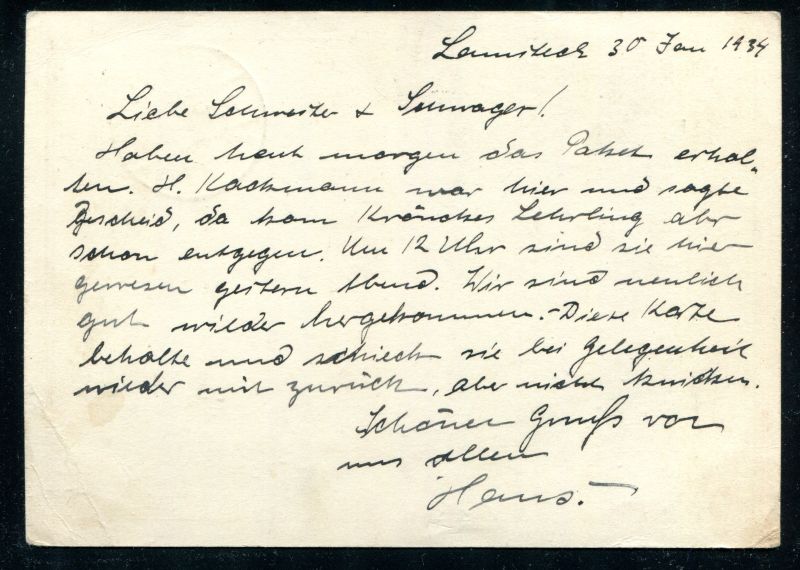 30 Jan 1934
Liebe Schwester & Schwager!
Haben heut morgen das Paket erhal„
ten. H. Kackmann war hier und sagte
Bescheid, da kam Krönckes Lehrling aber
schon entgegen. Um 12 Uhr sind sie hier
gewesen gestern Abend. Wir sind neulich
gut wieder hergekommen. - Diese Karte
behalte und schick sie bei Gelegenheit
wieder mit zurück, aber nicht knicken.
Schönen Gruß von
uns allen
Hans. -